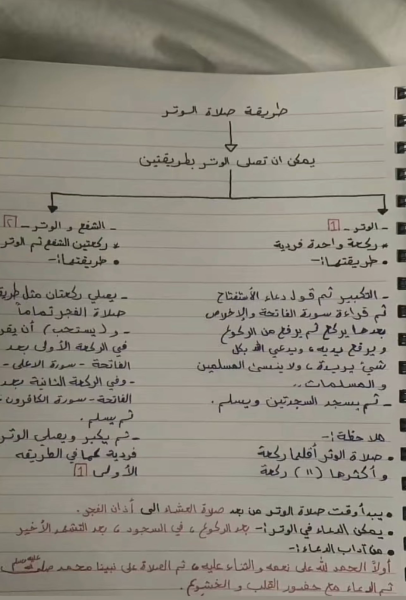 طريقة صلاة الوتر
يمكن ان تصلى الوتر بطريقتين
- الوتر - 1
* ركعة واحدة فردية
• طريقتها :-
- التكبير ثم قول دعاء الأستفتاح
ثم قراءة سورة الفاتحة والإخلاص
بعدها يركع ثم يرفع من الركوع
و يرفع يديه ، ويدعي الله بكل
شئ يريده ، ولا ينسى المسلمين
و المسلمات ..
- ثم يسجد السجدتين ويسلم .
ملاحظة :-
• صلاة الوتر أقلها ركعة
و أكثرها (11) ركعة
- الشفع و الوتر - 2
* ركعتين الشفع ثم الوتر
• طريقتها :-
- يصلي ركعتان مثل
صلاة الفجر تماماً
- و (يستحب) أن
في الركعة الأولى بعد
الفاتحة - سورة الاعلى -
- وفي الركعة الثانية بعد
الفاتحة - سورة الكافرون
ثم يسلم .
- ثم يكبر ويصلي الوتر
فردية كما في الطريقة
الأولى 1
• يبدأ وقت صلاة الوتر من بعد صلاة العشاء الى أذان الفجر .
• يمكن الدعاء في الوتر :- بعد الركوع ، في السجود ، بعد التشهد الأخير
• من آداب الدعاء :-
أولاً الحمد لله على نعمه والثناء عليه ، ثم الصلاة على نبينا محمد صلى الله عليه وسلم
ثم الدعاء مع حضور القلب و الخشوع .